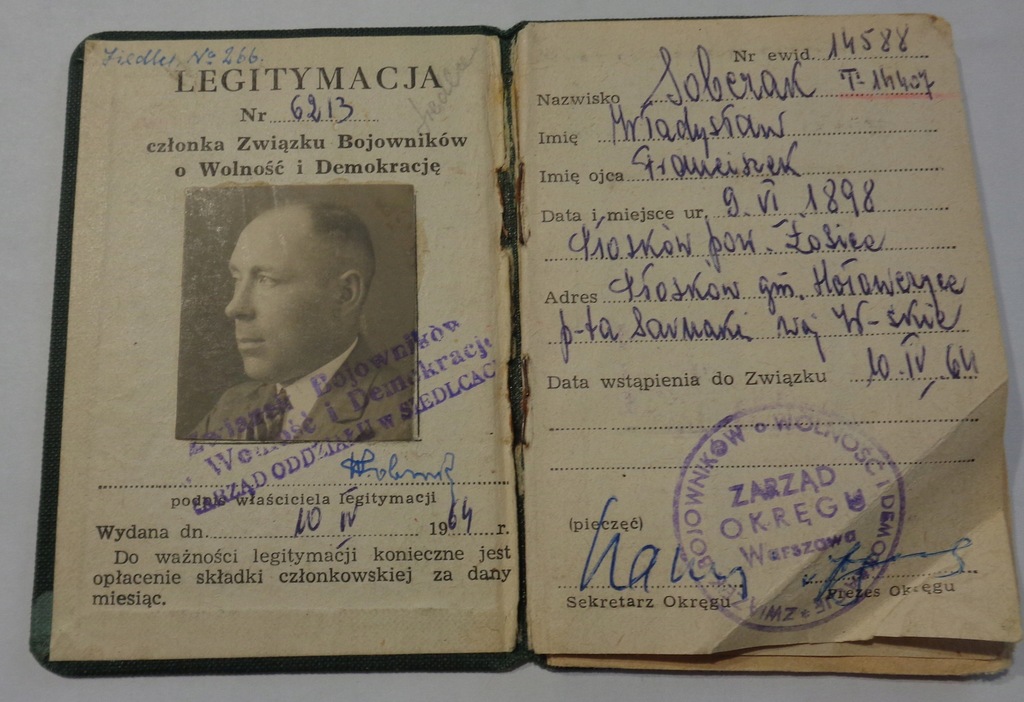 Siedlce, No 266.
LEGITYMACJA
Nr 6213
członka Związku Bojowników
o Wolność i Demokrację
Związek Bojowników
o Wolność i Demokrację
ZARZĄD ODDZIAŁU w SIEDLCACH
podpis właściciela legitymacji
Wydana dn. 10 IV 1964 r.
Do ważności legitymacji konieczne jest
opłacenie składki członkowskiej za dany
miesiąc.
Nr ewid. 14588
T-14407
Nazwisko Soberzak
Imię Władysław
Imię ojca Franciszek
Data i miejsce ur. 9. VI 1898
Kłosków pow. Łosice
Adres Kłosków gm. Hołowczyce
p-ta Sarnaki woj W-skie
Data wstąpienia do Związku 10. IV, 64
(pieczęć)
ZARZĄD
OKRĘGU
Warszawa
BOJOWNIKÓW o WOLNOŚĆ i DEMOKRACJĘ * ZWIĄZEK
Sekretarz Okręgu
Prezes Okręgu